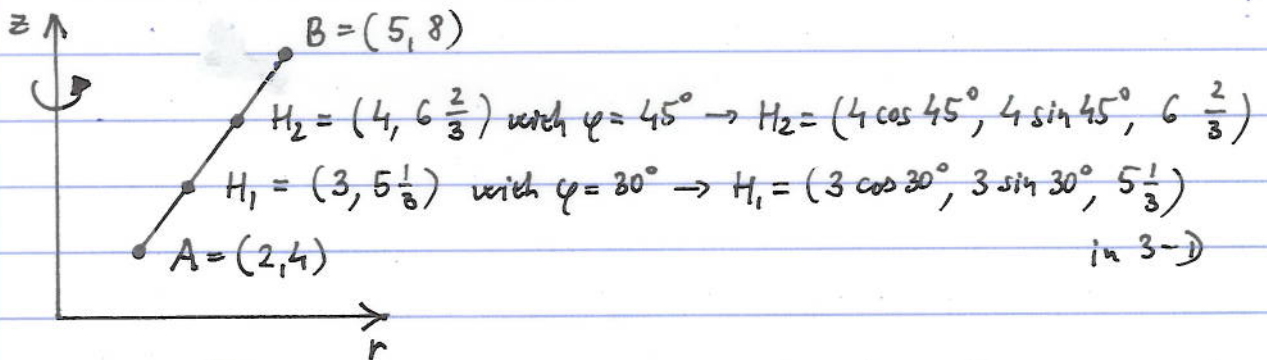 z
B = (5, 8)
H₂ = (4, 6 2/3) with φ = 45° → H₂ = (4 cos 45°, 4 sin 45°, 6 2/3)
H₁ = (3, 5 1/3) with φ = 30° → H₁ = (3 cos 30°, 3 sin 30°, 5 1/3)
in 3-D
A = (2,4)
r